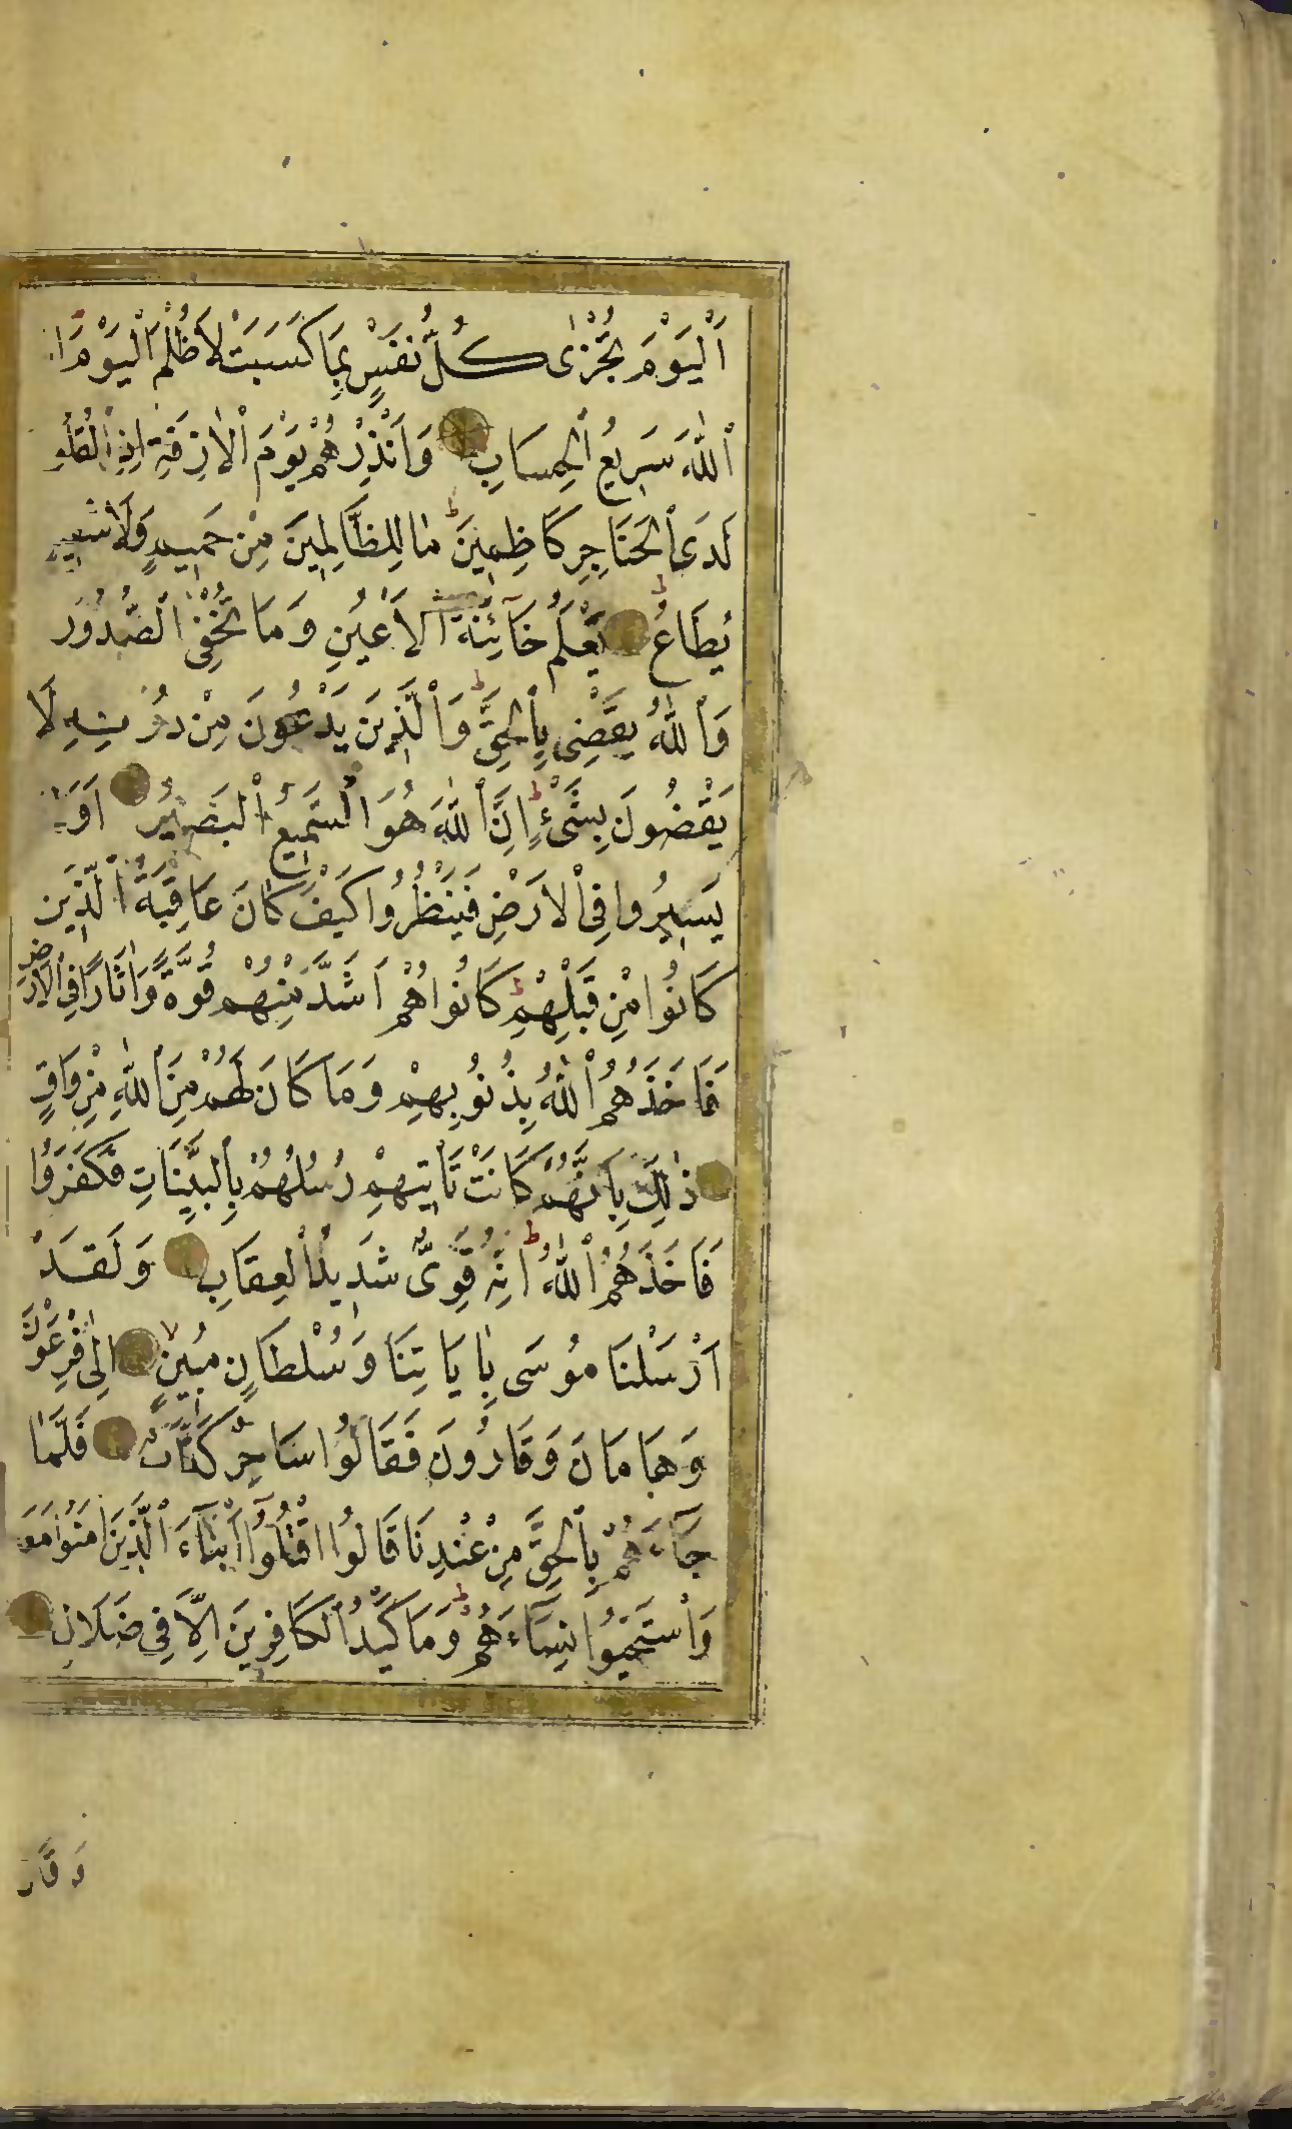 اَلْيَوْمَ تُجْزٰى كُلُّ نَفْسٍ بِمَا كَسَبَتْ لَا ظُلْمَ الْيَوْمَ
اللّٰهَ سَرِيعُ الْحِسَابِ وَاَنْذِرْهُمْ يَوْمَ الْاٰزِفَةِ اِذِ
لَدَى الْحَنَاجِرِ كَاظِمِينَ مَا لِلظَّالِمِينَ مِنْ حَمِيمٍ وَلَا
يُطَاعُ يَعْلَمُ خَآئِنَةَ الْاَعْيُنِ وَمَا تُخْفِي الصُّدُورُ
وَاللّٰهُ يَقْضِى بِالْحَقِّ وَالَّذِينَ يَدْعُونَ مِنْ دُونِهِ لَا
يَقْضُونَ بِشَىْءٍ اِنَّ اللّٰهَ هُوَ السَّمِيعُ الْبَصِيرُ
يَسِيرُوا فِى الْاَرْضِ فَيَنْظُرُوا كَيْفَ كَانَ عَاقِبَةُ الَّذِينَ
كَانُوا مِنْ قَبْلِهِمْ كَانُوا هُمْ اَشَدَّ مِنْهُمْ قُوَّةً وَاٰثَارًا فِى الْاَرْضِ
فَاَخَذَهُمُ اللّٰهُ بِذُنُوبِهِمْ وَمَا كَانَ لَهُمْ مِنَ اللّٰهِ مِنْ وَاقٍ
ذٰلِكَ بِاَنَّهُمْ كَانَتْ تَاْتِيهِمْ رُسُلُهُمْ بِالْبَيِّنَاتِ فَكَفَرُوا
فَاَخَذَهُمُ اللّٰهُ اِنَّهُ قَوِىٌّ شَدِيدُ الْعِقَابِ وَلَقَدْ
اَرْسَلْنَا مُوسَى بِاٰيَاتِنَا وَسُلْطَانٍ مُبِينٍ اِلٰى فِرْعَوْنَ
وَهَامَانَ وَقَارُونَ فَقَالُوا سَاحِرٌ كَذَّابٌ فَلَمَّا
جَآءَهُمْ بِالْحَقِّ مِنْ عِنْدِنَا قَالُوا اقْتُلُوٓا اَبْنَآءَ الَّذِينَ اٰمَنُوا
وَاسْتَحْيُوا نِسَآءَهُمْ وَمَا كَيْدُ الْكَافِرِينَ اِلَّا فِى ضَلَالٍ